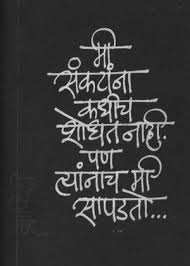 मी
संकटांना
कधीच
शोधत नाही.
पण
त्यांनाच मी
सापडतो...